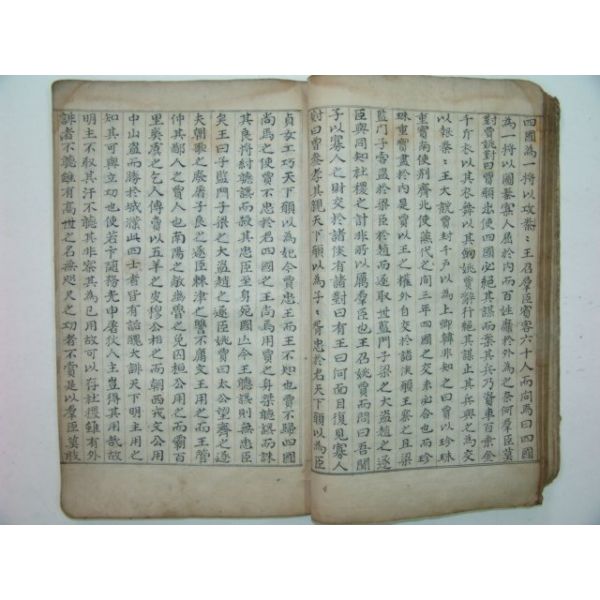 四國為一將以攻秦〻王召羣臣賓客六十人而问焉曰四國
為一将以圖秦寡人屈於内而百姓靡於外為之奈何羣臣莫
對姚賈對曰賈願出使四國必絕其謀而案其兵乃資車百乘金
千斤衣以其衣舞以其劍姚賈辭行絕其謀止其兵與之為交
以報秦〻王大説賈封千户以為上卿韓非知之曰賈以珍珠
重寶南使荆齊北使燕代之間三年四國之交未必合也而珍
珠重寶盡於内是賈以王之權外自交於諸侯願王察之且梁
監門子嘗盗於梁臣於趙而逐取世監門子梁之大盗趙之逐
臣與同知社稷之計非所以厲羣臣也王召姚賈而問曰吾聞
子以寡人之財交於諸侯有諸對曰有王曰何面目復見寡人
對曰曾参孝其親天下願以為子〻胥忠於君天下願以為臣
貞女工巧天下願以為妃今賈忠王而王不知也賈不歸四國
尚焉之使賈不忠於君四國之王尚焉用賈之身桀聽讒而誅
其良将紂聽讒而殺其忠臣至身死國亡今王聽讒則無忠臣
矣王曰子監門子梁之大盗趙之逐臣姚賈曰太公望齊之逐
夫朝歌之廢屠子良之逐臣棘津之讐不庸文王用之而王管
仲其鄙人之賈也南陽之敝幽魯之免囚桓公用之而霸百
里奚虞之乞人傳賣以五羊之皮穆公相之而朝西戎文公用
中山盗而勝於城濮此四士者皆有詬醜大誹天下明主用之
知其可與立功也使若卞隨務光申屠狄人主豈得其用哉故
明主不取其汙不聽其非察其為己用故可以存社稷雖有外
誹者不聽雖有高世之名無咫尺之功者不賞是以羣臣莫敢